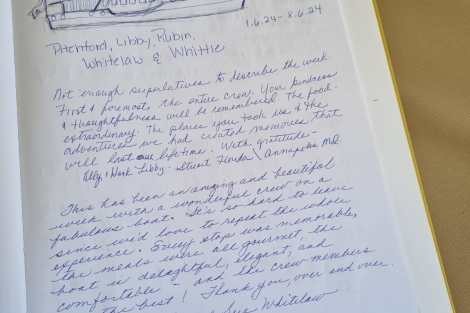 1.6.24 - 8.6.24
Pitchford, Libby, Rubin,
Whitelaw & Whittle
Not enough superlatives to describe the week.
First & foremost, the entire crew. Your kindness
& thoughtfulness will be remembered. The food-
extraordinary. The places you took us & the
adventures we had created memories that
will last our lifetime. With gratitude-
Libby - Annapolis MD.
This has been an amazing and beautiful
week with a wonderful crew on a
fabulous boat. It's so hard to leave
since we'd love to repeat the whole
experience. Every stop was memorable,
the meals were all gourmet, the
boat is delightful, elegant, and
comfortable - and the crew members
the best! Thank you, over and over.
Sue Whitelaw